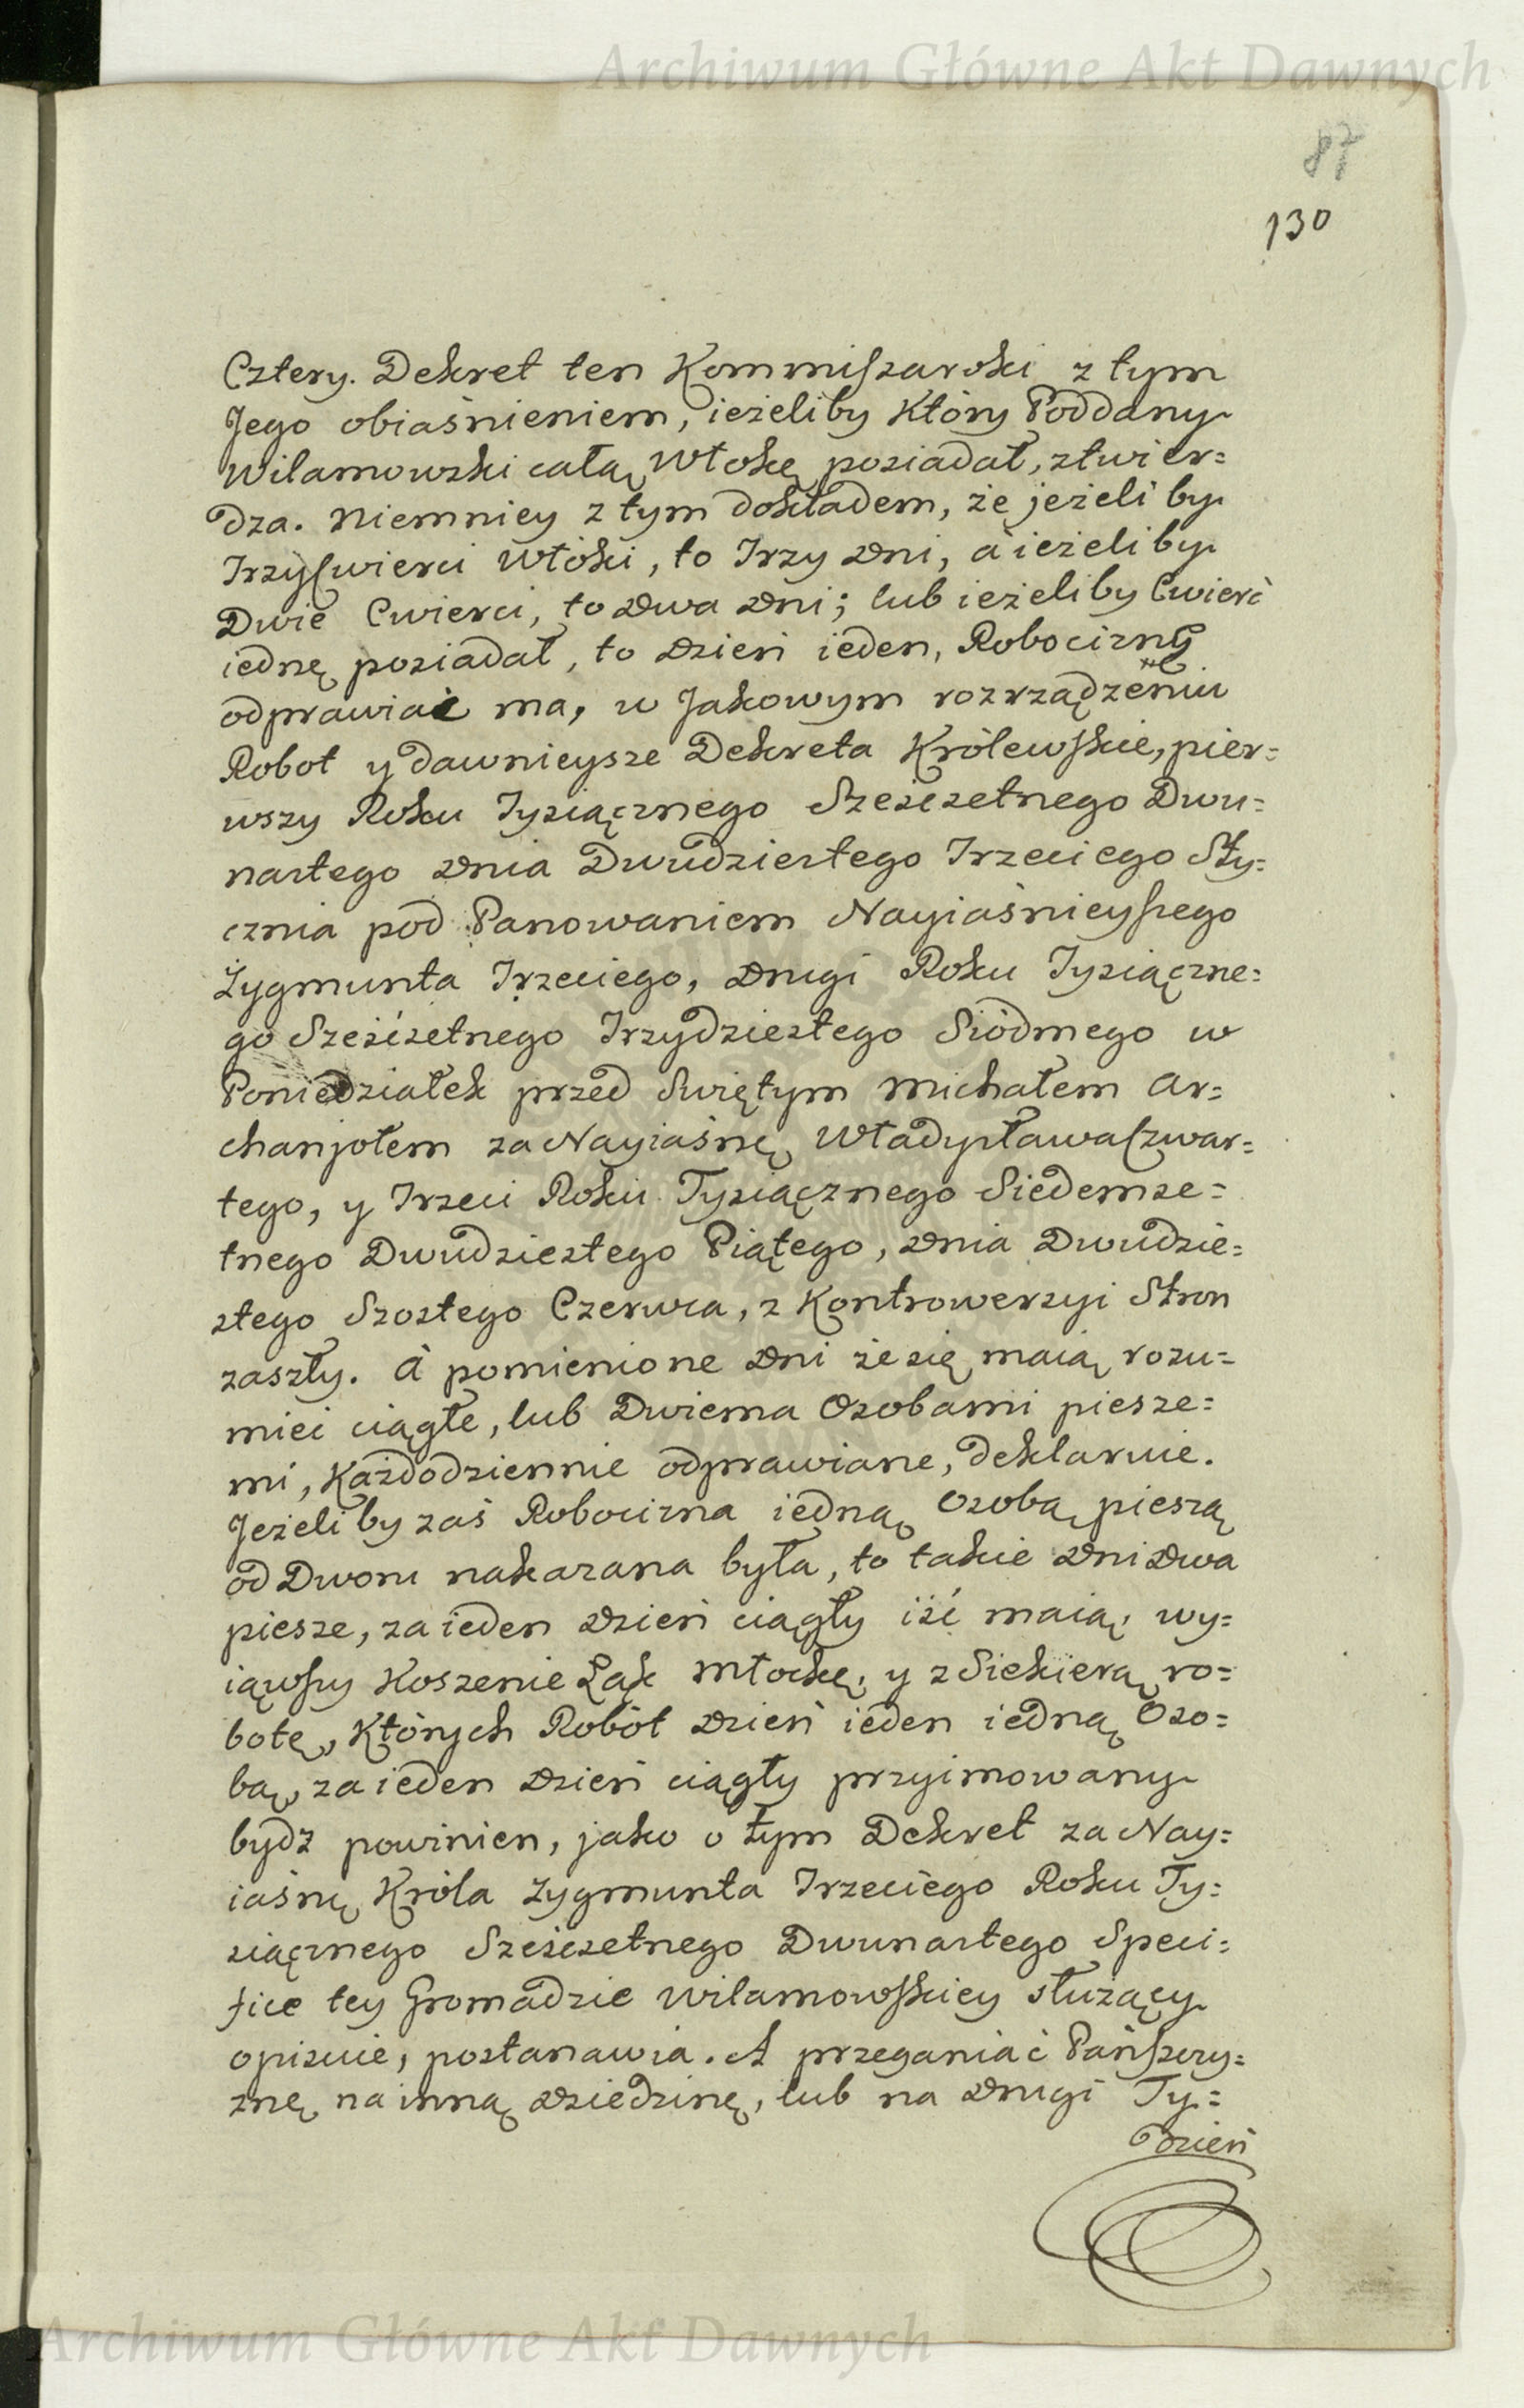 Archiwum Główne Akt Dawnych
87
130
Cztery. Dekret ten Kommiſsarski z tym
Jego obiaśnieniem, ieżeliby Który Poddany
Wilamowski całą Włokę posiadał, ztwier=
dza. Niemniey z tym dokładem, że jeżeli by
Trzy Cwierci Włóki, to Trzy Dni, á ieżeli by
Dwie Cwierci, to Dwa Dni; lub ieżeliby Cwierć
iednę posiadał, to Dzień ieden, Robociznę
odprawiać ma, w Jakowym rozrządzeniu
Robot y dawnieysze Dekreta Królewſkie, pier=
wszy Roku Tysiącznego Sześćsetnego Dwu=
nastego Dnia Dwudziestego Trzeciego Sty=
cznia pod Panowaniem Nayiaśnieyſzego
Zygmunta Trzeciego, Drugi Roku Tysiączne=
go Sześćsetnego Trzydziestego Siódmego w
Poniedziałek przed Swiętym Michałem Ar=
chanjołem za Nayiaśnę Władysława Czwar=
tego, y Trzeci Roku Tysiącznego Siedemse=
tnego Dwudziestego Piątego, Dnia Dwudzie=
stego Szostego Czerwca, z Kontrowersyi Stron
zaszły. á pomienione Dni że się maią rozu=
mieć ciągłe, lub Dwiema Osobami piesze=
mi, Każdodziennie odprawiane, deklaruie.
Jeżeli by zaś Robocizna iedną Osobą pieszą
od Dworu nakazana była, to takie Dni Dwa
piesze, za ieden Dzień ciągły iść maią, wy=
iąwſzy Koszenie Łąk Młockę, y z Siekierą ro=
botę, Których Robót Dzień ieden iedną Oso=
bą, za ieden Dzień ciągły przyimowany
bydz powinien, jako o tym Dekret za Nay=
iaśnę Króla Zygmunta Trzeciego Roku Ty=
siącznego Sześćsetnego Dwunastego Speci=
fice tey Gromadzie Wilamowſkiey służący
opisuie, postanawia. A przeganiać Pańſzczy=
znę na inną Dziedzinę, lub na Drugi Ty=
dzień
Archiwum Główne Akt Dawnych